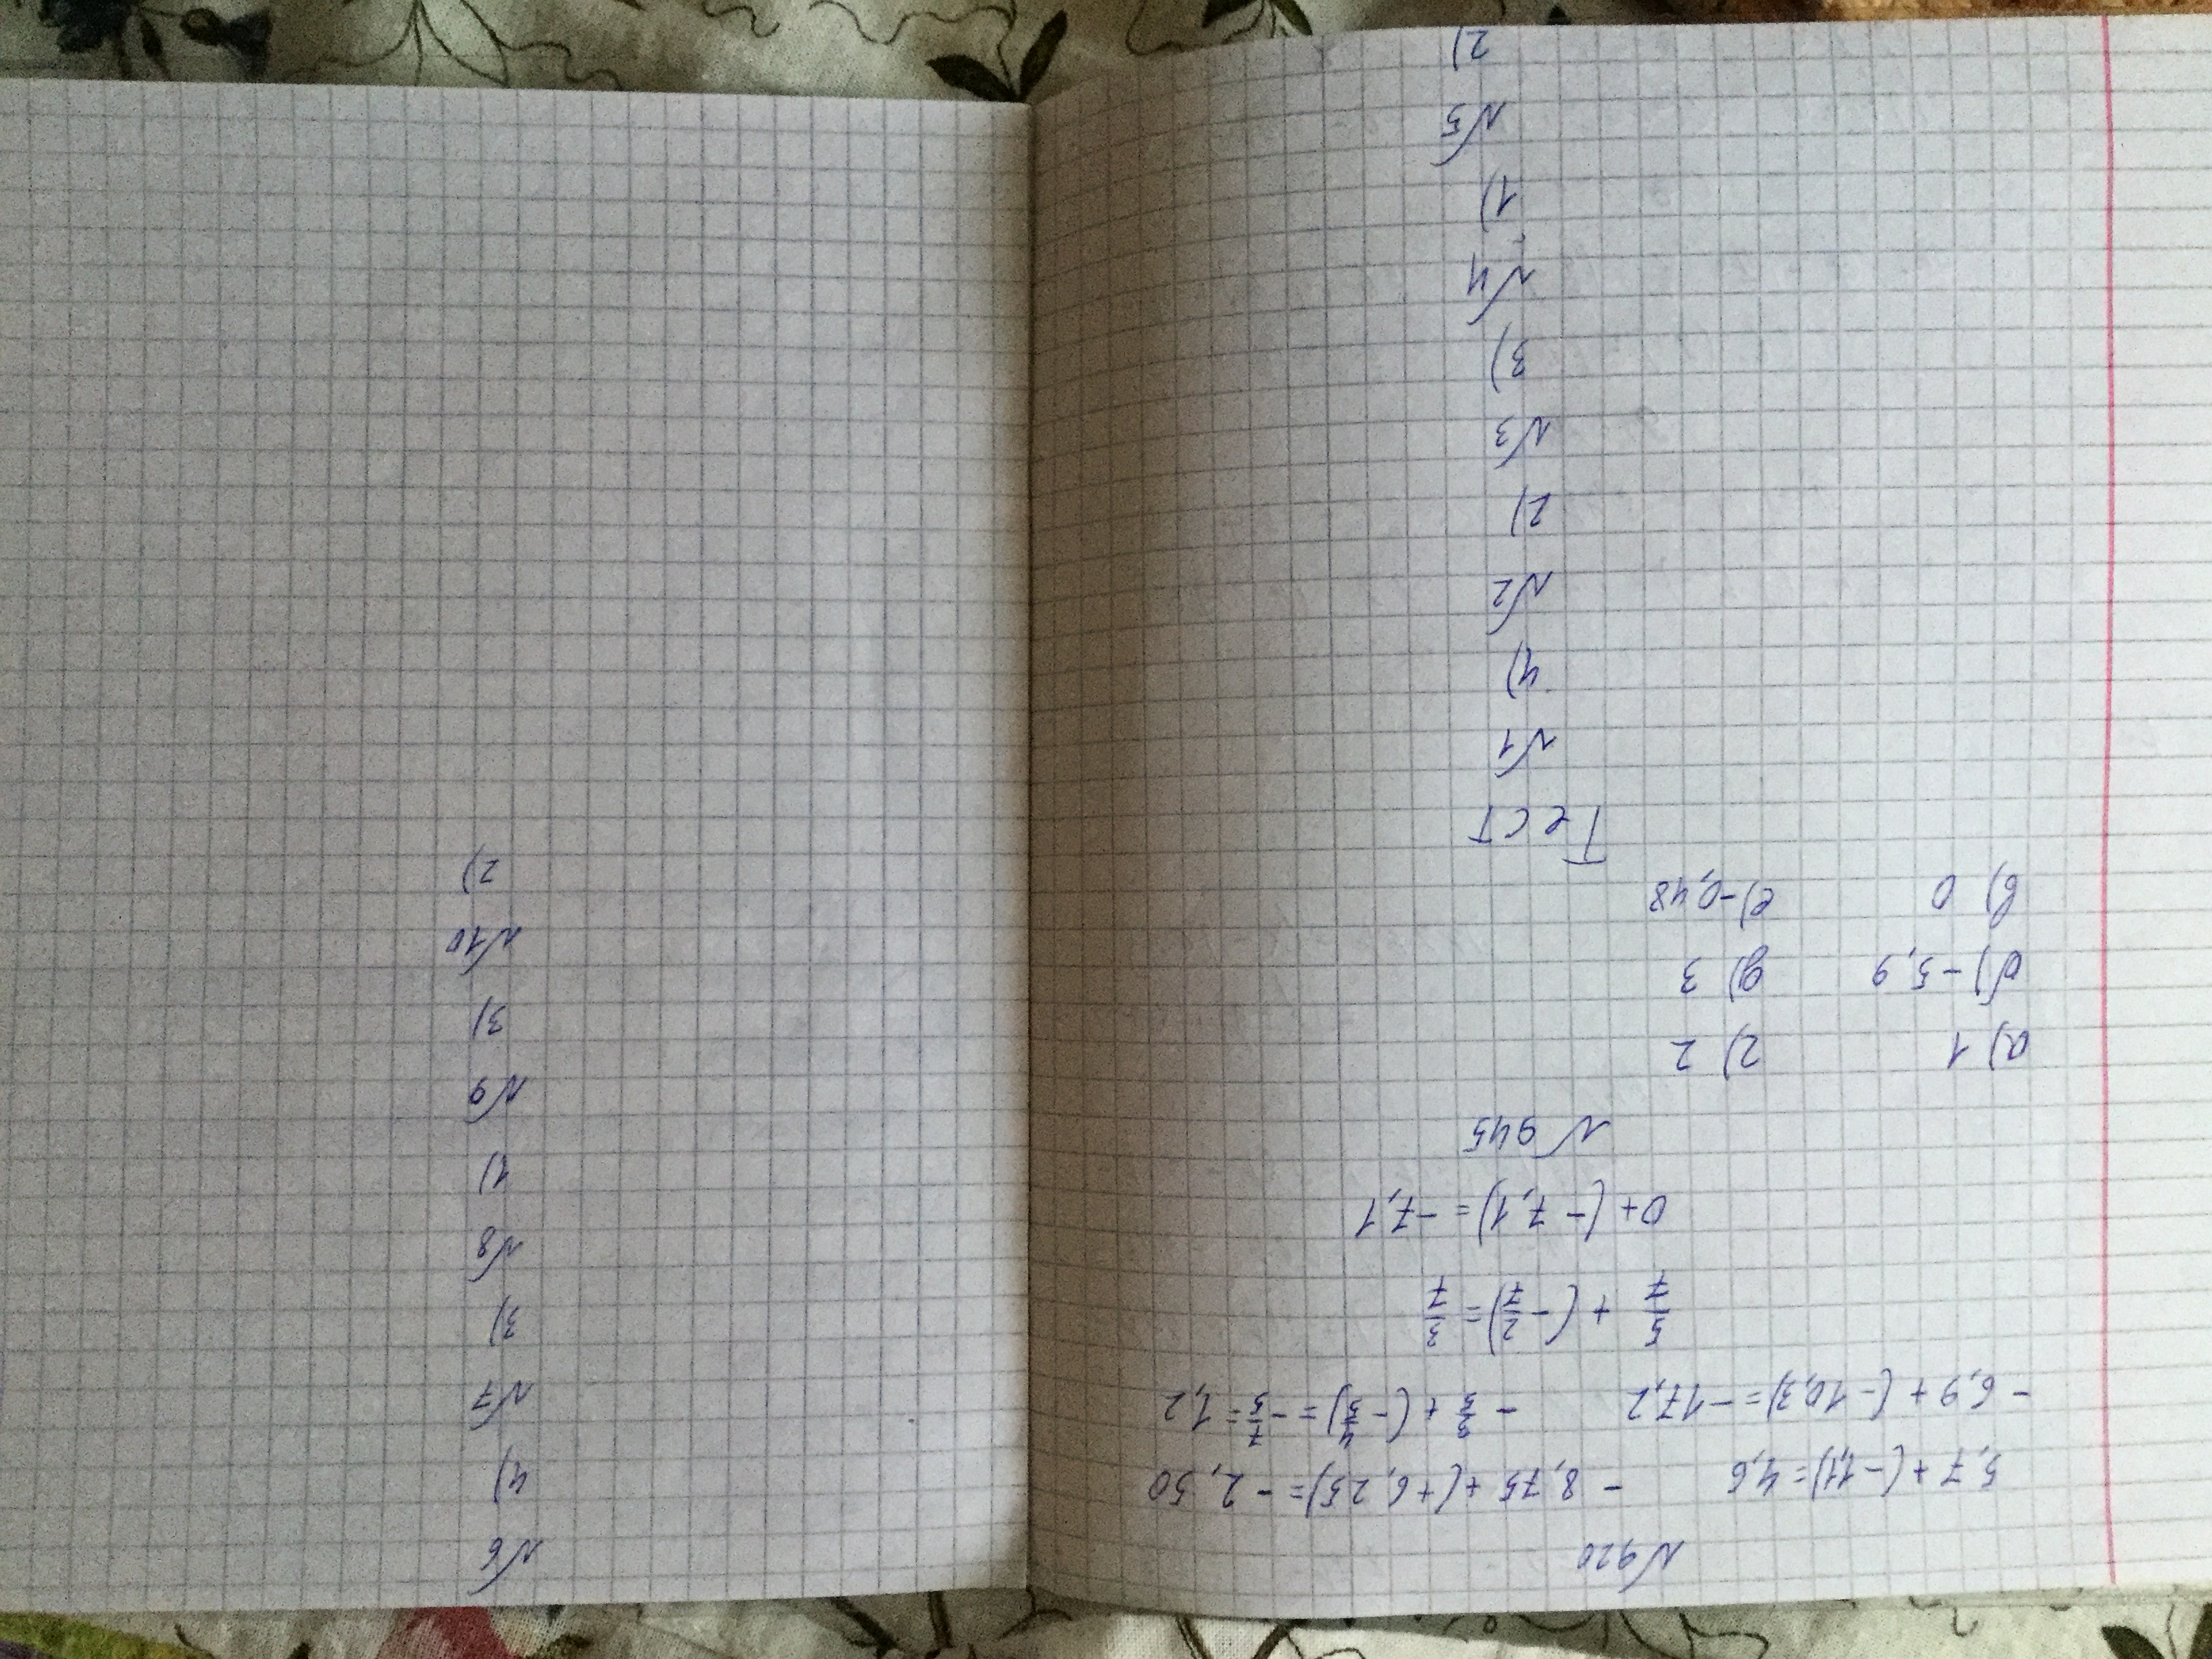 №920
5,7 + (-1,1) = 4,6 - 8,75 + (+6,25) = - 2,50
- 6,9 + (- 10,3) = - 17,2 - 3/5 + (- 4/5) = - 7/5 = 1,2
5/7 + (- 2/7) = 3/7
0 + (- 7,1) = - 7,1
№945
а) 1 г) 2
б) - 5,9 д) 3
в) 0 е) - 0,48
Тест
№1
4)
№2
2)
№3
3)
№4
1)
№5
2)
№6
4)
№7
3)
№8
1)
№9
3)
№10
2)